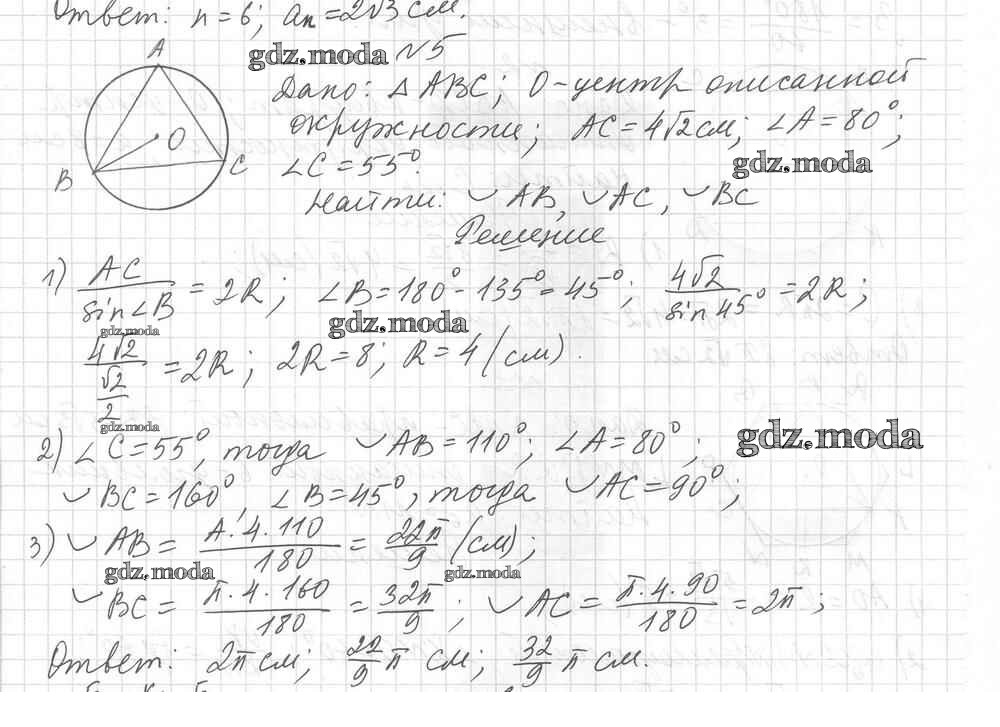 Ответ: n = 6; aₙ = 2√3 см.
A
gdz.moda №5
Дано: △ ABC; O - центр описанной
O
окружности; AC = 4√2 см; ∠A = 80°;
B
C
∠C = 55°.
gdz.moda
Найти: ◡ AB, ◡ AC, ◡ BC
Решение
1) AC / sin∠B = 2R; ∠B = 180° - 135° = 45°; 4√2 / sin 45° = 2R;
gdz.moda
gdz.moda
4√2 / (√2 / 2) = 2R; 2R = 8; R = 4 (см).
gdz.moda
gdz.moda
2) ∠C = 55°, тогда ◡ AB = 110°; ∠A = 80°;
◡ BC = 160°, ∠B = 45°, тогда ◡ AC = 90°;
3) ◡ AB = π · 4 · 110 / 180 = 22π / 9 (см);
gdz.moda
gdz.moda
◡ BC = π · 4 · 160 / 180 = 32π / 9; ◡ AC = π · 4 · 90 / 180 = 2π;
Ответ: 2π см; 22/9 π см; 32/9 π см.